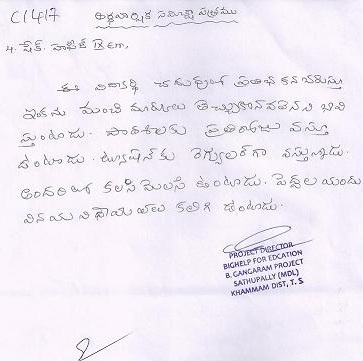 C1417 అర్ధవార్షిక సమీక్షా పత్రము
4. షేక్.
ఈ విద్యార్థి చదువులో ప్రతిభ కనబరుస్తు
ఇతను మంచి మార్కులు తెచ్చుకోవాలని భావి
స్తుంటాడు. పాఠశాలకు ప్రతిరోజు వస్తు
వుంటాడు. ట్యూషన్‌కు రెగ్యులర్‌గా వస్తున్నాడు.
అందరితో కలసి మెలసి ఉంటాడు. పెద్దల యందు
వినయ విధేయతలు కలిగి ఉంటాడు.
PROJECT DIRECTOR
BIGHELP FOR EDCATION
B. GANGARAM PROJECT
SATHUPALLY (MDL)
KHAMMAM DIST, T. S